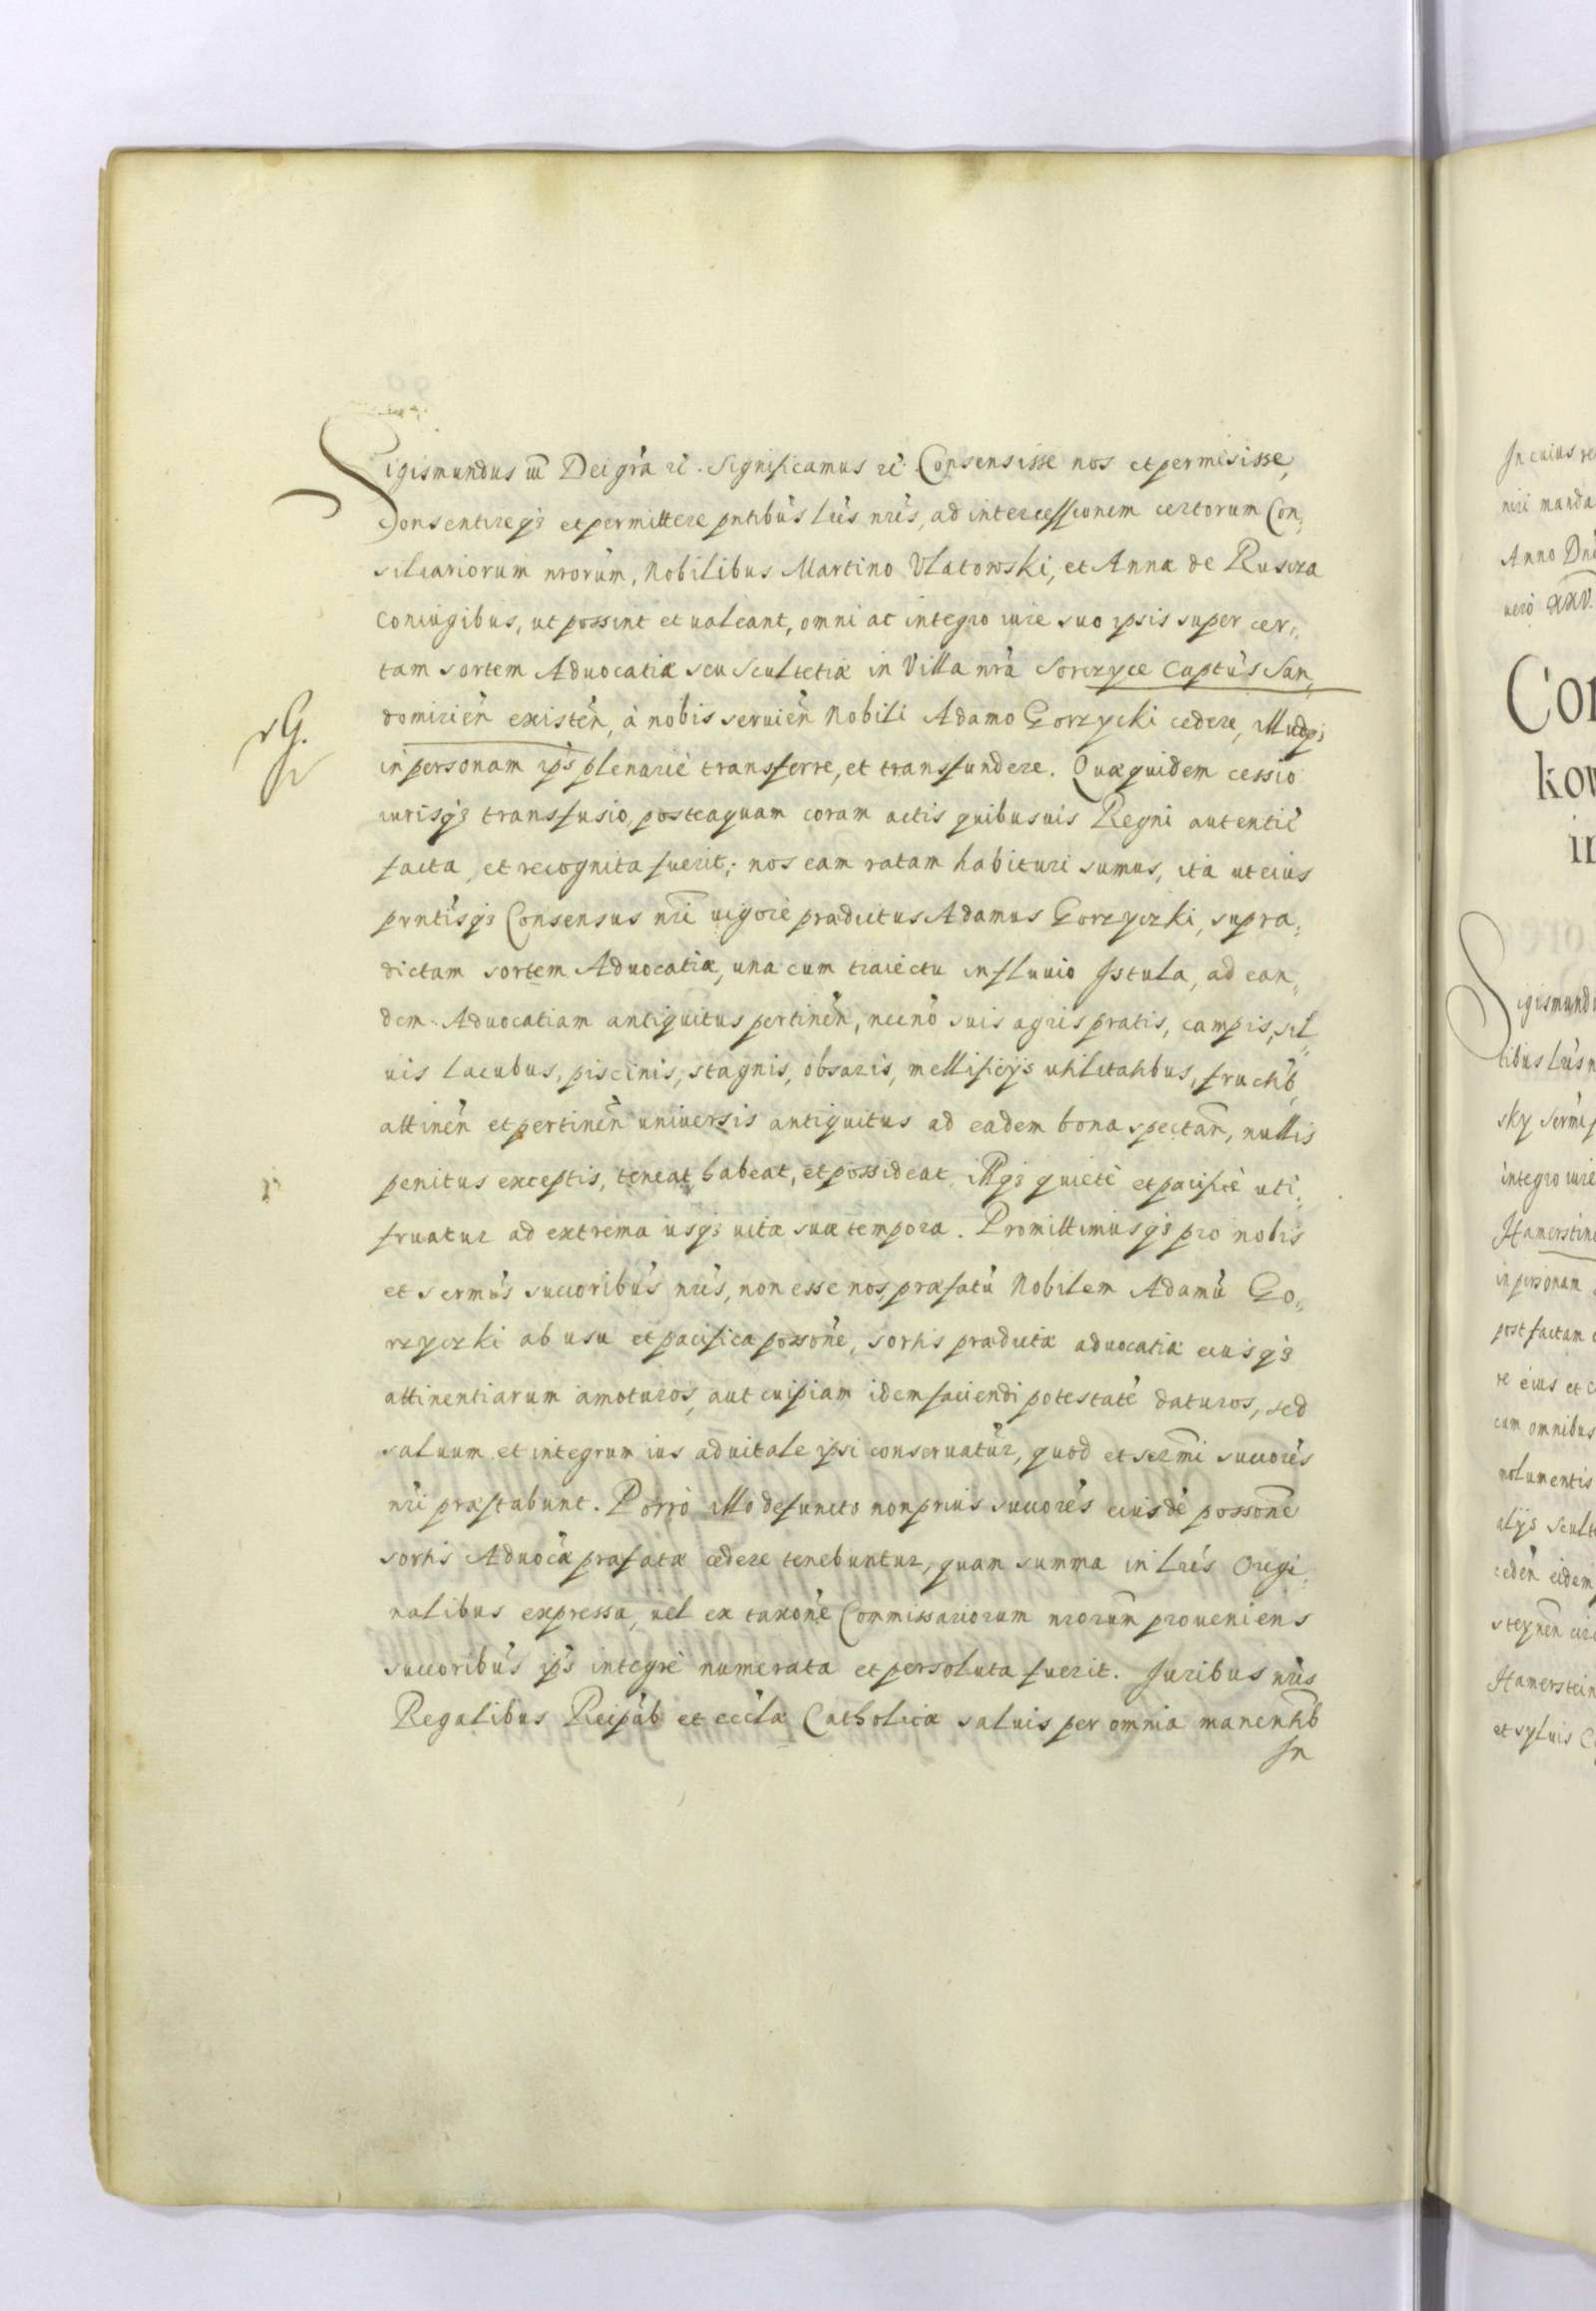 Sigismundus iii Dei gra etc. Significamus etc. Consensisse nos et permisisse,
Consentireq3 et permittere pntibus lris nris, ad intercessionem certorum Con,
siliariorum nrorum, Nobilibus Martino Vlatowski, et Annæ de Ruscza
Coniugibus, ut possint et ualeant, omni ac integro iure suo ipsis super cer,
tam sortem Aduocatiæ seu Scultetiæ in Villa nra Sorczyce Captus San,
domirien existen, à nobis seruien Nobili Adamo Gorzycki cedere, illudq3
in personam ips plenariè transferre, et transfundere. Quæquidem cessio
iurisq3 transfusio, posteaquam coram actis quibusuis Regni autentic
facta, et recognita fuerit; nos eam ratam habituri sumus, ita ut eius
prntisq3 Consensus nri uigore prædictus Adamus Gorzyczki, supra,
dictam sortem Aduocatiæ, una cum traiectu in fluuio Istula, ad ean,
dem Aduocatiam antiquitus pertinen, necno suis agris pratis, campis, sil
uis lacubus, piscinis, stagnis, obsaris, mellificijs utilitatibus, fructib
attinen et pertinen uniuersis antiquitus ad eadem bona spectan, nullis
penitus exceptis, teneat habeat, et possideat, illisq3 quietè et pacificè uti,
fruatur ad extrema usq3 uitæ suæ tempora. Promittimusq3 pro nobis
et sermis succoribus nris, non esse nos, præfatu Nobilem Adamu Go,
rzyczki ab usu et pacifica possone, sortis prædictæ aduocatiæ eiusq3
attinentiarum amoturos, aut cuipiam idem faciendi potestate daturos, sed
saluum et integrum ius aduitale ipsi conseruatur, quod et sermi succores
nri præstabunt. Porrò illo defuncto non prius succores eiusde possone
sortis Aduocæ præfatæ cedere tenebuntur, quam summa in lris Origi,
nalibus expressa, uel ex taxone Commissariorum nrorum proueniens
succoribus ips integrè numerata et persoluta fuerit. Juribus nris
Regalibus Reipub et eccla Catholicæ saluis per omnia manentib
In
rG.
In cuius re
nri manda
Anno Dni
uero XXV.
Con
kow
in
Sigismund
tibus lris n
sky
integro iure
Hamerstin
in personam
post factam
re eius et c
cum omnibus
nolumentis
alijs sculte
ceden eidem
steynen
Hamerstein
et syluis